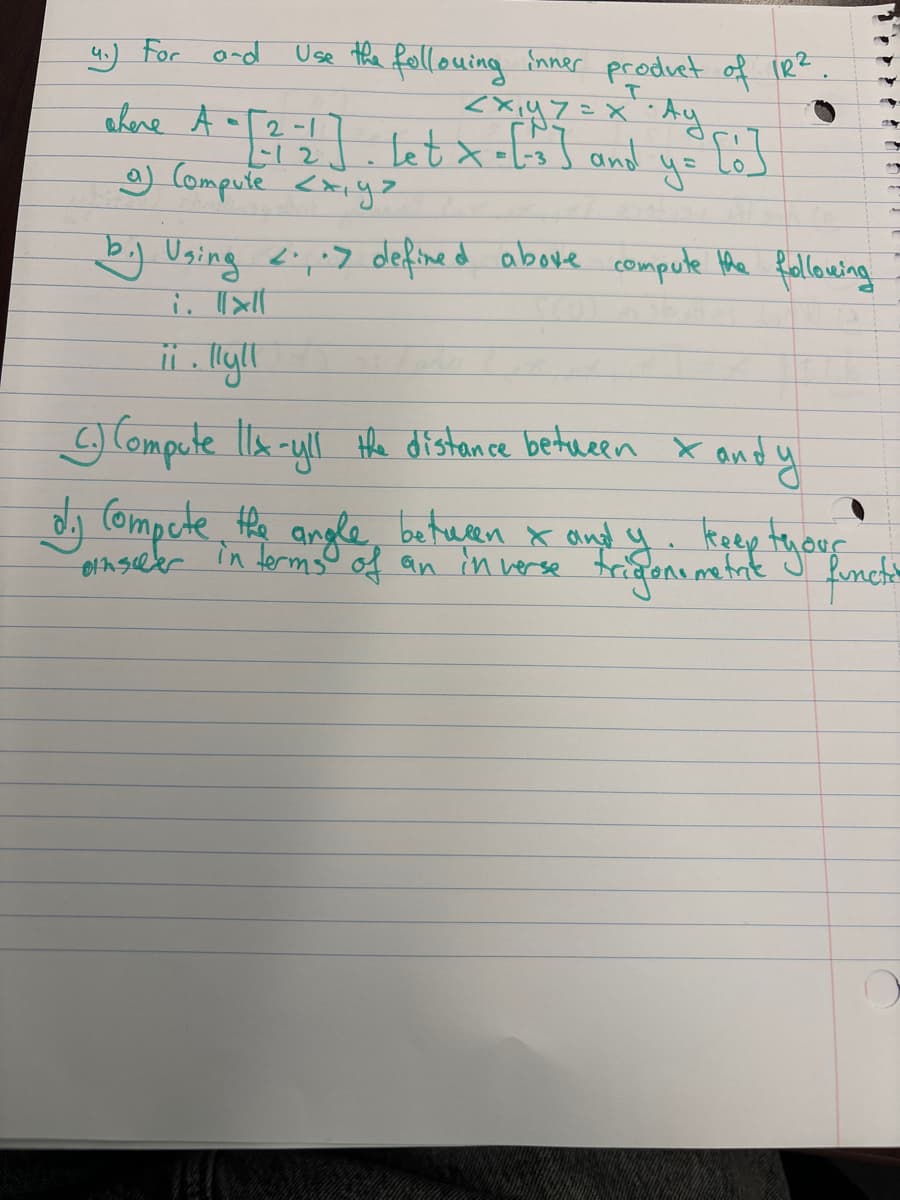 4.) For a-d Use the following inner product of ℝ².
<x,y> = xᵀ · Ay
where A = [2 -1; -1 2]. Let x = [ -3] and y = [1; 0]
a) Compute <x,y>
b.) Using <·,·> defined above compute the following
i. ||x||
ii. ||y||
c.) Compute ||x-y|| the distance between x and y
d.) Compute the angle between x and y. keep tyour
answer in terms of an inverse trigonometric function